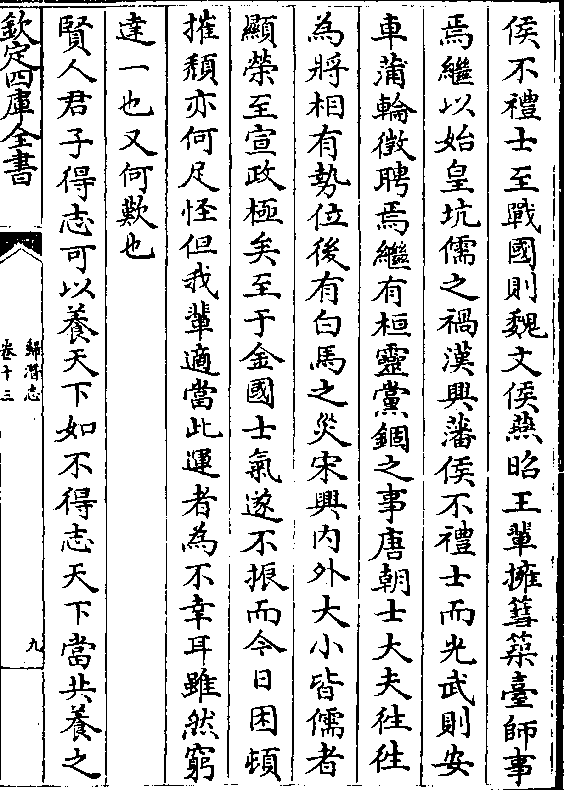 侯不禮士至戰國則魏文侯燕昭王輩擁篲築臺師事
焉繼以始皇坑儒之禍漢興藩侯不禮士而光武則安
車蒲輪徵聘焉繼有桓靈黨錮之事唐朝士大夫徃徃
為將相有勢位後有白馬之災宋興内外大小皆儒者
顯榮至宣政極矣至于金國士氣遂不振而今日困頓
摧頽亦何足怪但我輩適當此運者為不幸耳雖然窮
達一也又何歎也
賢人君子得志可以養天下如不得志天下當共養之
欽定四庫全書
歸潛志
卷十三
九